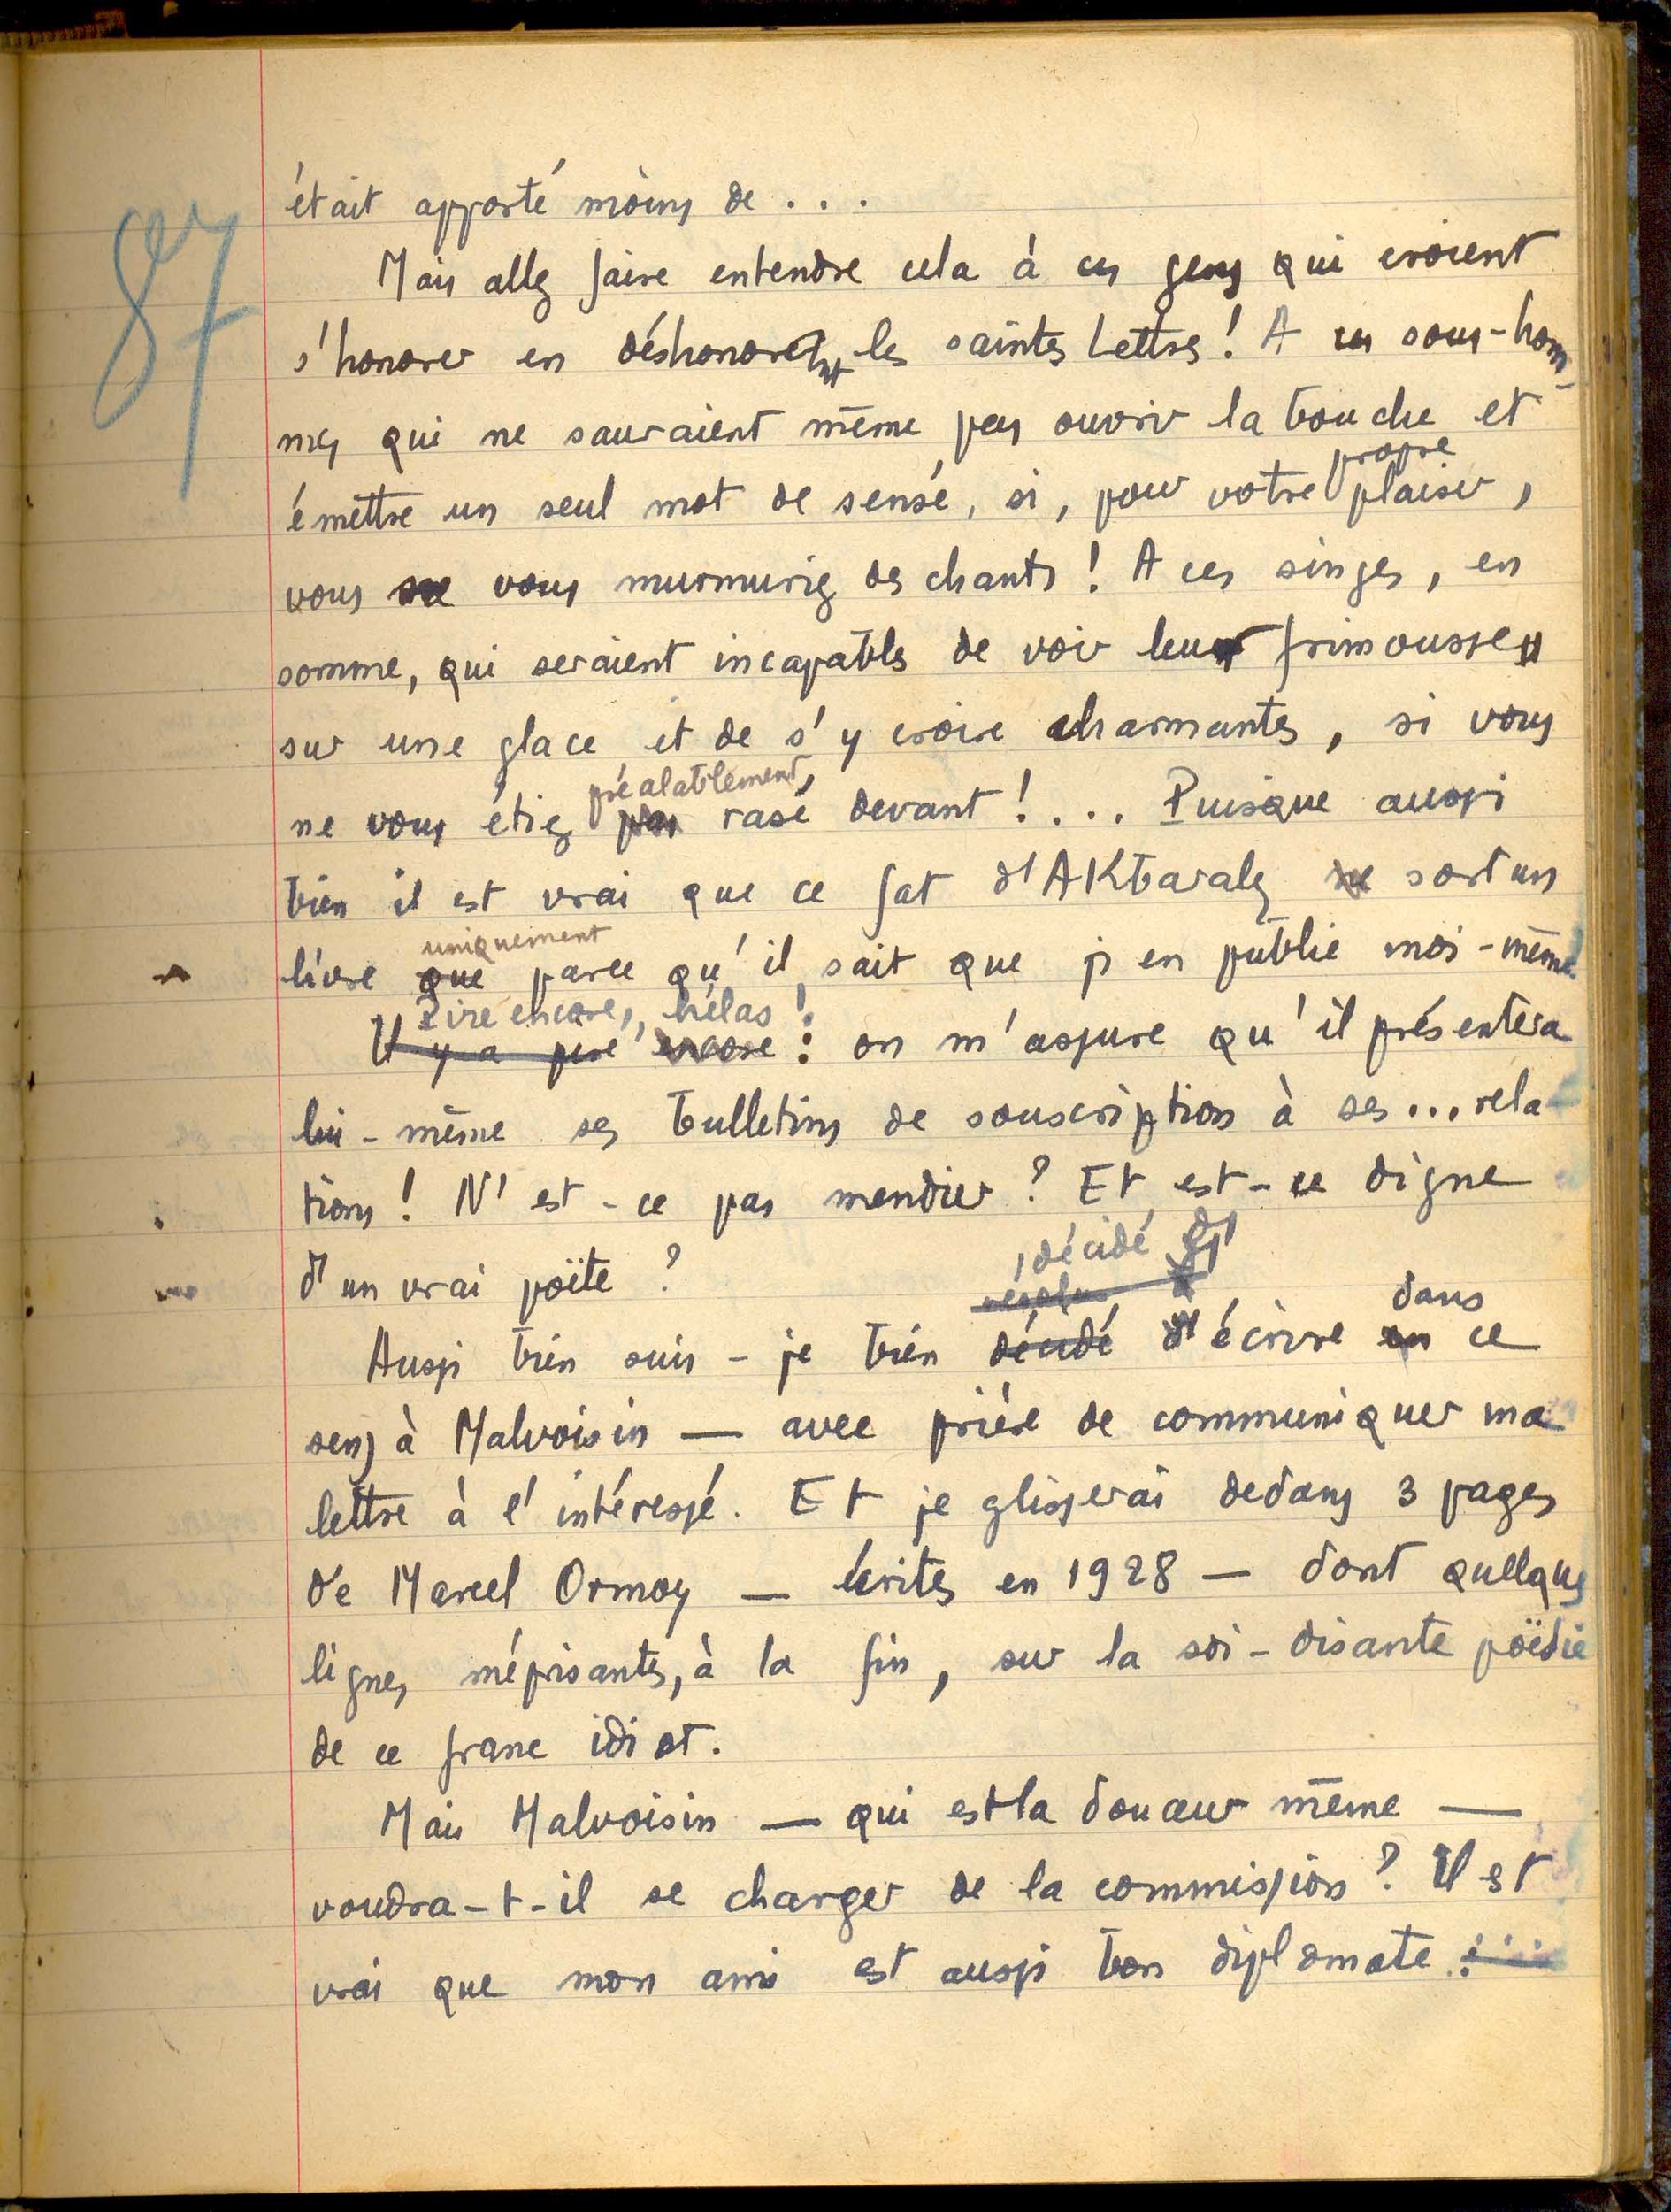 87
était apporté moins de . . .
Mais allez faire entendre cela à ces gens qui croient
s'honorer en déshonorant les saintes Lettres ! A ces sous-hom-
mes qui ne sauraient même pas ouvrir la bouche et
émettre un seul mot de sensé, si, pour votre propre plaisir,
vous ne vous murmuriez des chants ! A ces singes, en
somme, qui seraient incapables de voir leurs frimousses
sur une glace et de s'y croire charmantes, si vous
ne vous étiez préalablement, pas rasé devant ! . . . Puisque aussi
bien il est vrai que ce fat d'AKbaraly ne sort un
livre que uniquement parce qu'il sait que j'en publie moi-même.
Pire encore, hélas !
Il y a pire encore : on m'assure qu'il présentera
lui-même ses bulletins de souscription à ses... rela-
tions ! N'est-ce pas mendier ? Et est-ce digne
d'un vrai poëte ?
, décidé d'
résolu à
Aussi bien suis-je bien décidé d'écrire en dans ce
sens à Malvoisin — avec prière de communiquer ma
lettre à l'intéressé. Et je glisserai dedans 3 pages
de Marcel Ormoy — écrites en 1928 — dont quelques
lignes méprisantes, à la fin, sur la soi-disante poësie
de ce franc idiot.
Mais Malvoisin — qui est la douceur même —
voudra-t-il se charger de la commission ? Il est
vrai que mon ami est aussi bon diplomate . . . .